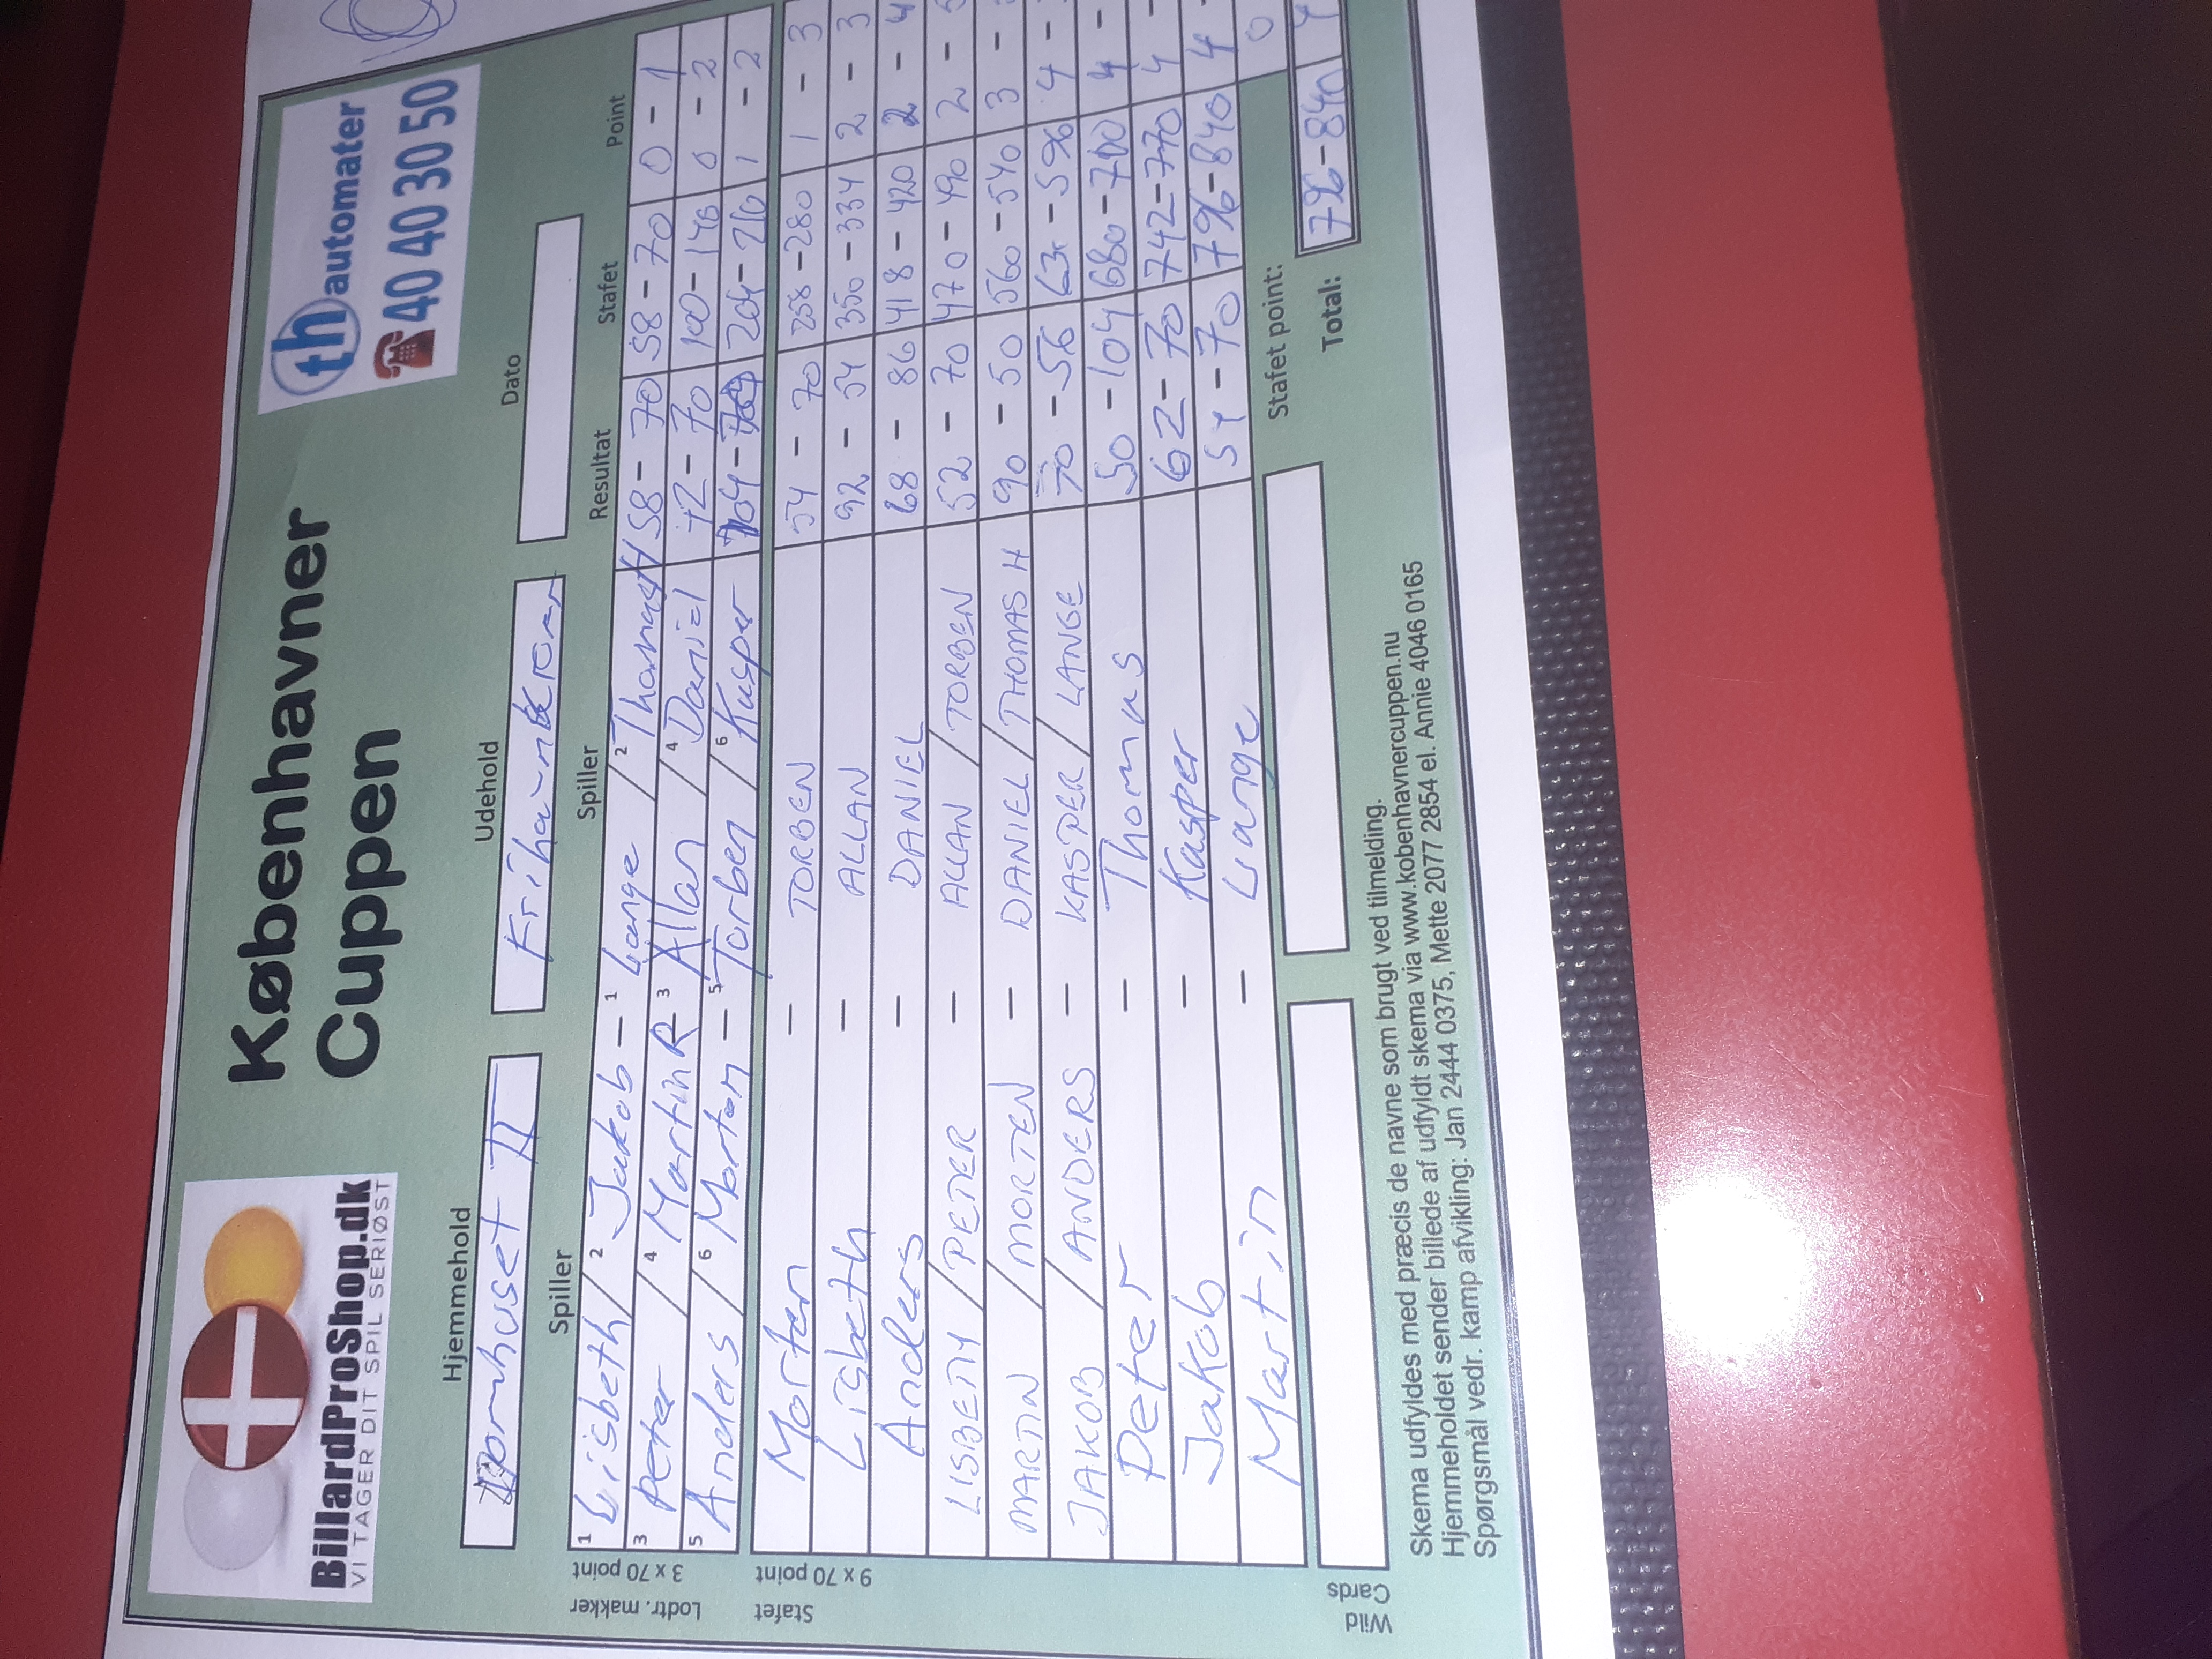 BillardProShop.dk
VI TAGER DIT SPIL SERIØST
Københavner
Cuppen
th automater
40 40 30 50
Hjemmehold Udehold Dato
Spiller Spiller Resultat Stafet Point
Lodtr. makker 3 x 70 point
1 Lisbeth / 2 Jakob - 1 Lange / 2 Thomas H 58 - 70 58 - 70 0 - 1
3 Peter / 4 Martin R 3 Allan / 4 Daniel 42 - 70 100 - 140 0 - 2
5 Anders / 6 Morten - 5 Torben / 6 Kasper 104 - 204 - 210 1 - 2
Stafet 9 x 70 point
Morten - TORBEN 54 - 70 258 - 280 1 - 3
Lisbeth - ALLAN 92 - 54 350 - 334 2 - 3
Anders - DANIEL 68 - 86 418 - 420 2 - 4
LISBETH / PETER - ALLAN / TORBEN 52 - 70 470 - 490 2 -
MARTIN / MORTEN - DANIEL / THOMAS H 90 - 50 560 - 540 3 -
JAKOB / ANDERS - KASPER / LANGE 70 - 56 - 596 4 -
Peter - Thomas 50 - 104 680 - 700 4 -
Jakob - Kasper 62 - 70 742 - 770 4 -
Martin - Lange 54 - 70 796 - 840 4 -
Stafet point: 0
Wild Cards
Total: 796 - 840
Skema udfyldes med præcis de navne som brugt ved tilmelding.
Hjemmeholdet sender billede af udfyldt skema via www.kobenhavnercuppen.nu
Spørgsmål vedr. kamp afvikling: Jan 2444 0375, Mette 2077 2854 el. Annie 4046 0165